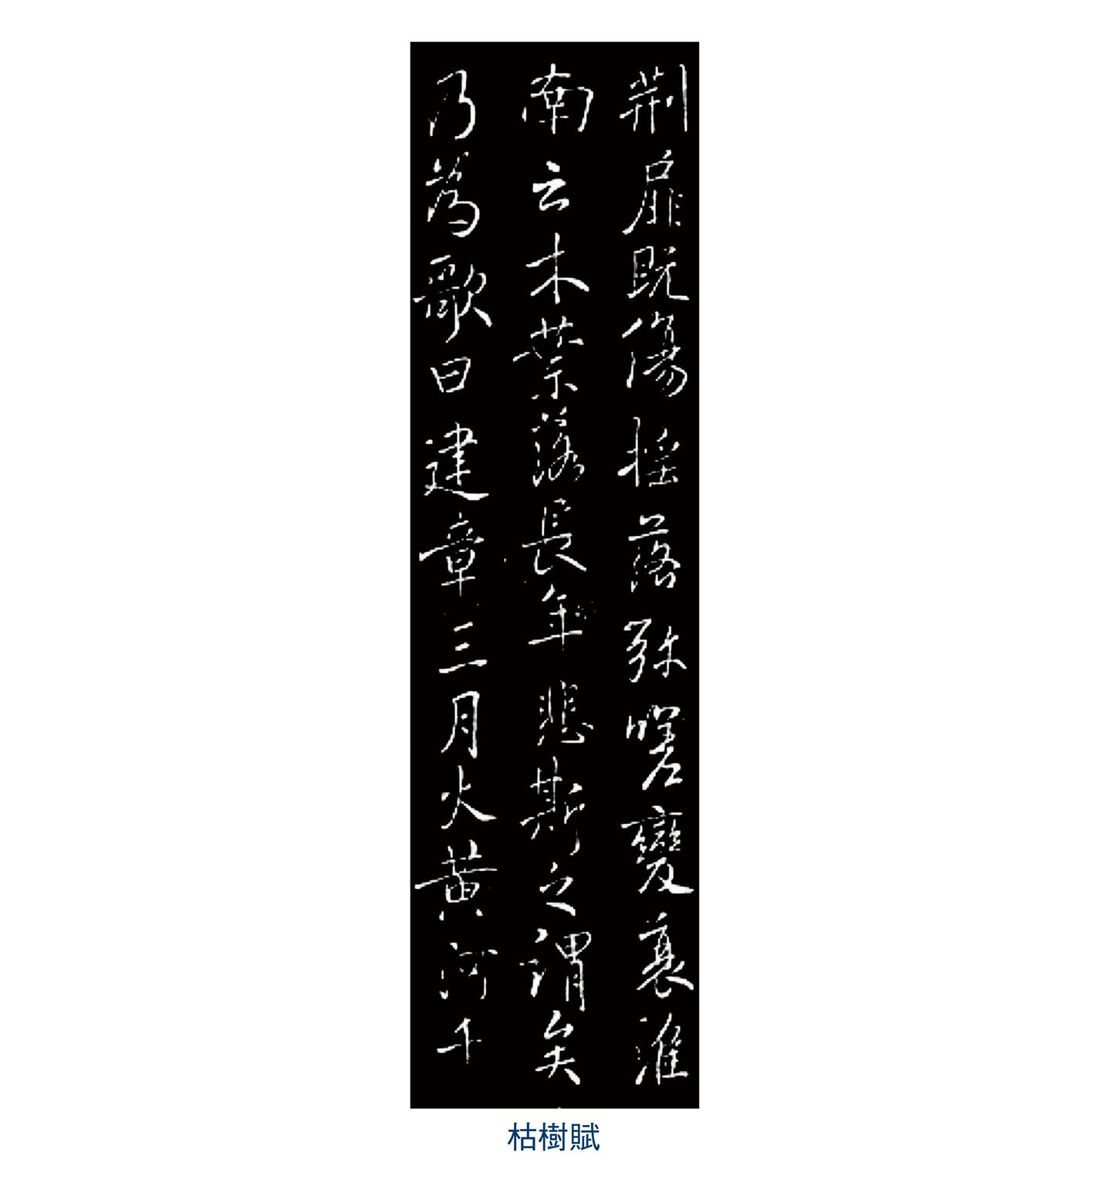 荆扉既傷摇落弥嗟變衰淮
南云木葉落長年悲斯之謂矣
乃為歌曰建章三月火黄河千
枯樹賦